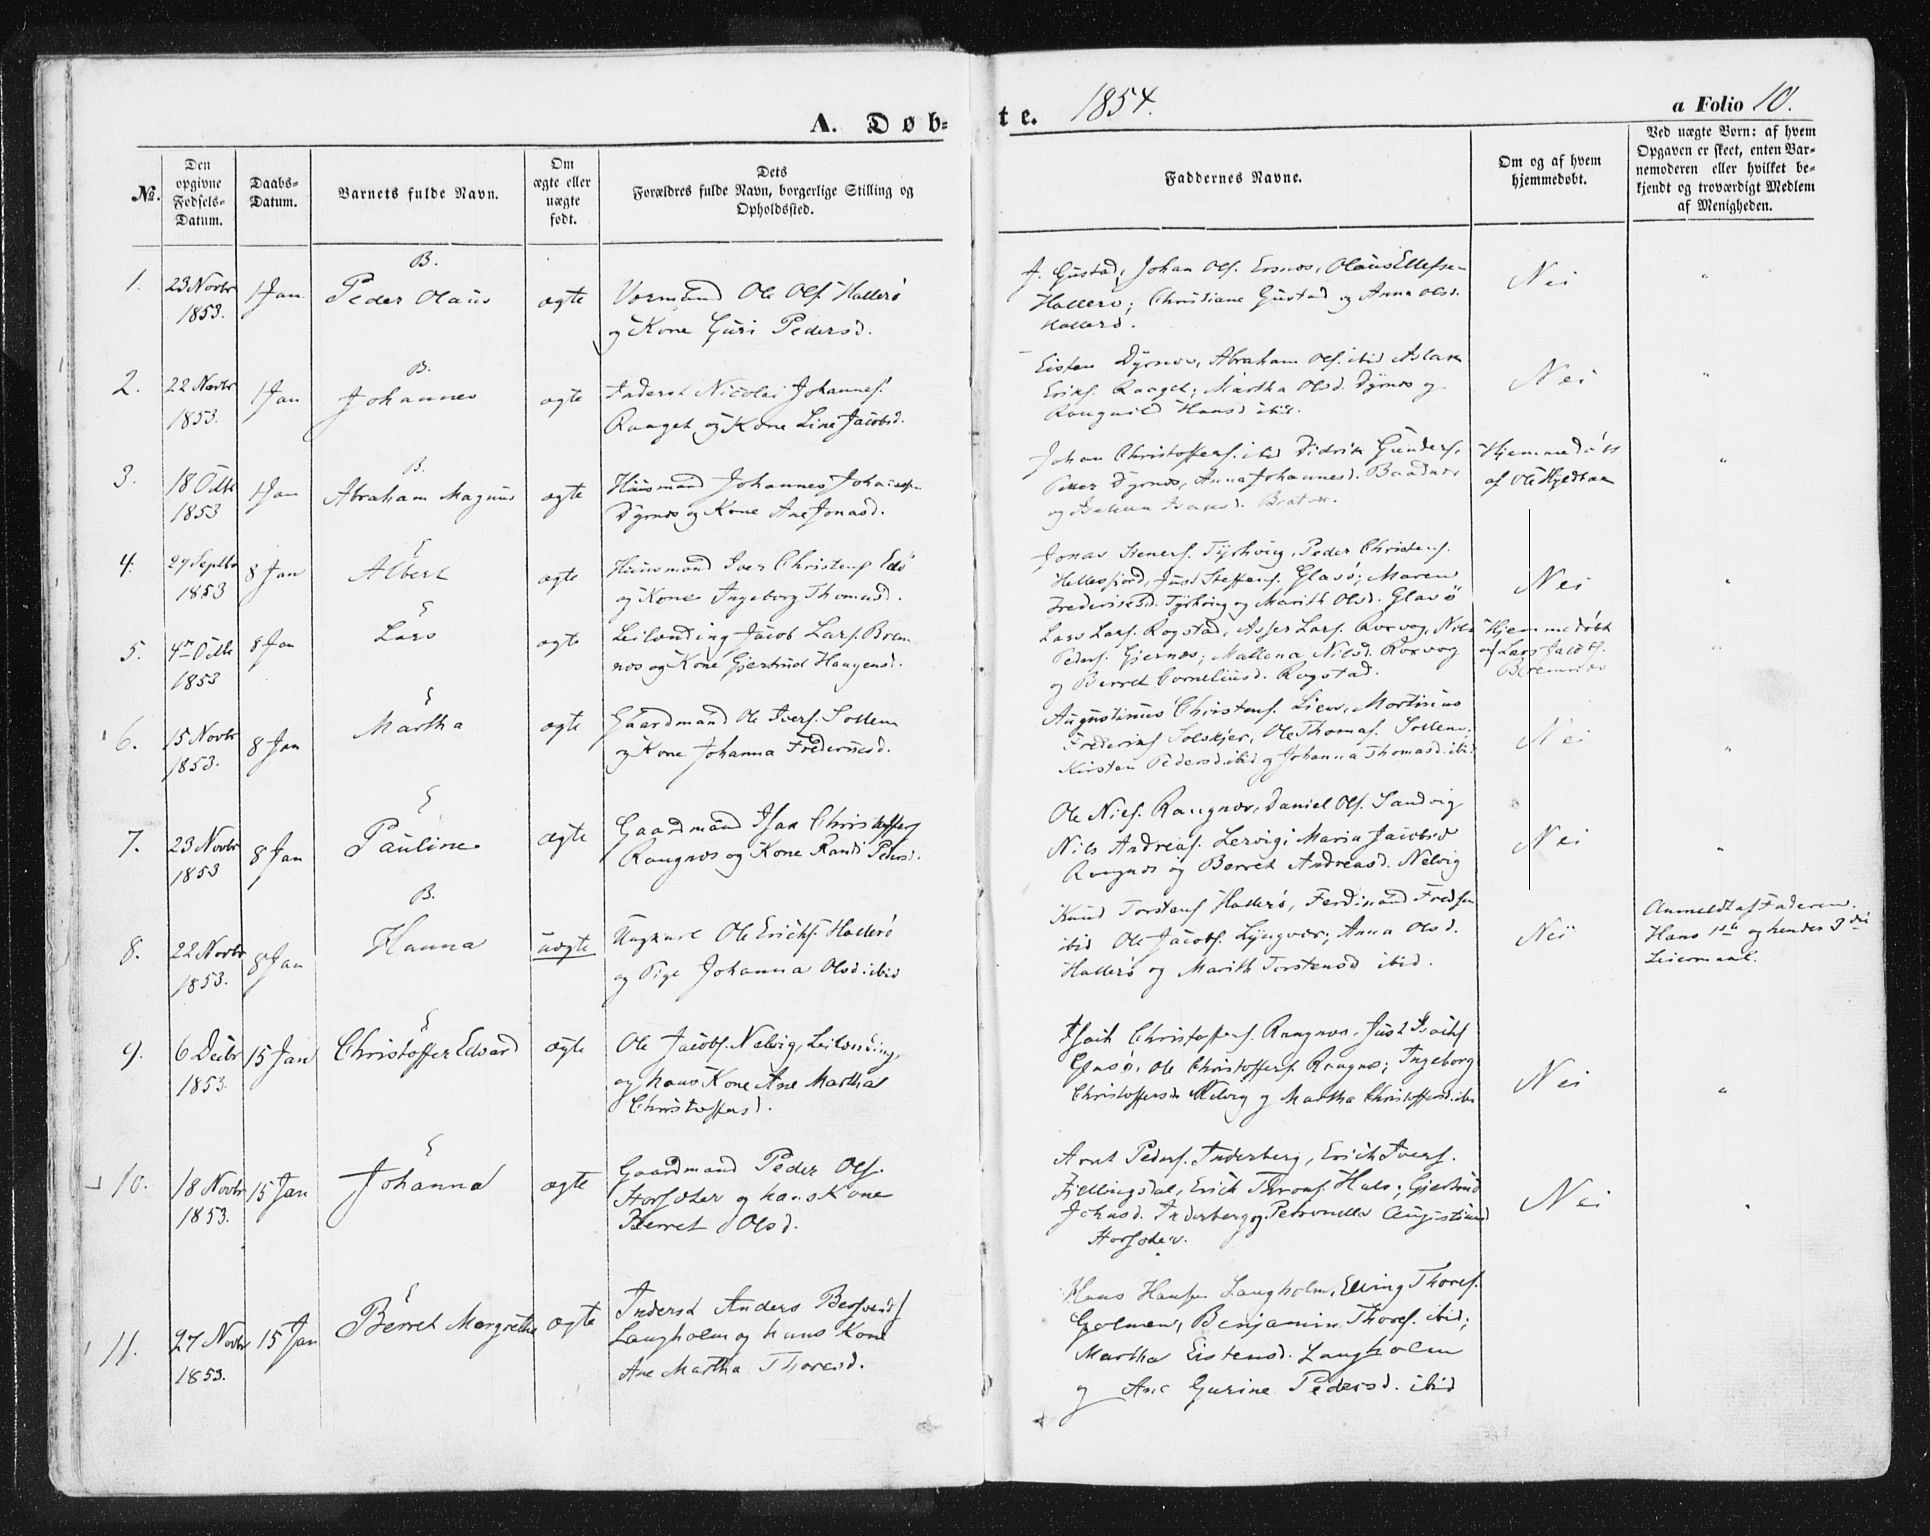 A. Døb-
te. 1854.
a Folio 10.
№.
Den opgivne Fødsels-Datum.
Daabs-Datum.
Barnets fulde Navn.
Om ægte eller uægte født.
Dets Forældres fulde Navn, borgerlige Stilling og Opholdssted.
Faddernes Navne.
Om og af hvem hjemmedøbt.
Ved uægte Børn: af hvem
Opgaven er skeet, enten Bar-
nemoderen eller hvilket be-
kjendt og troværdigt Medlem
af Menigheden.
1.
23 Novbr
1853.
1 Jan
B.
Peder Olaus
ægte
Ole Ols. Hallerö
og Kone Guri Pedersd.
J. Gustad, Johan Ols. Ersnæs, Olaus Ellefsen
Hallerö; Christiane Gustad og Anna Olsd.
Hallerö.
Nei
"
2.
22 Novbr
1853.
1 Jan
B.
Johannes
ægte
Inderst Nicolai Johannes.
Raaget og Kone Line Jacobsd.
Eisten Dyrnæs, Abraham Ols. ibid Aslak
Eriks. Raaget; Martha Olsd. Dyrnæs og
Raugnild Hansd ibid.
Nei
"
3.
18 Octbr
1853
1 Jan
B.
Abraham Magnus
ægte
Huusmand Johannes Johannes.
Dyrnæs og Kone Ane Jonasd.
Johan Christoffers. ibid Didrik Gunders.
Petter Dyrnæs, Anna Johannesd. Baadnæs
og Isaksd. Bratvær.
Hjemmedöbt
af Ole
"
4.
27 Septbr
1853
8 Jan
E
Albert
ægte
Huusmand Iver Christens. Edö
og Kone Ingeborg Thomasd.
Jonas Steners. Tyrhoug, Peder Christens.
Hellesfjord, Just Steffens. Glasö; Maren
Frederiksd. Tyrhoug og Marith Olsd. Glasö
Nei
"
5.
4de Octbr
1853
8 Jan
E
Lars
ægte
Leilænding Jacob Lars. Brem-
næs og Kone Gjertrud Haagensd.
Lars Lars. Rogstad, Asser Lars. Roxvog, Nils
Peders. Gjernæs; Mallena Nilsd. Roxvog
og Berret Corneliusd. Rogstad.
Hjemmedöbt
af Lars Jacobs.
Bremnæs
"
6.
15 Novbr
1853.
8 Jan
E
Martha
ægte
Gaardmand Ole Ivers. Sollem
og Kone Johanna Frederiksd.
Augustinus Christens. Lien, Mortinus
Frederiks Solskjer, Ole Thomas. Sollem,
Kirsten Pedersd. ibid og Johanna Thomasd. ibid
Nei
"
7.
23 Novbr
1853
8 Jan
E
Pauline
ægte
Gaardmand Isak Christoffers
Raugnæs og Kone Randi Pedersd.
Ole Niels. Raugnæs, Daniel Ols. Sandvig
Nils Andreas. Lervig; Maria Jacobsd
Raugnæs og Berret Andreasd. Nelvig
Nei
"
8.
22 Novbr
1853.
8 Jan
B.
Hanna
uægte
Ungkarl Ole Ericks. Hallerö
og Pige Johanna Olsd. ibid
Knud Torstens Hallerö, Ferdinand Fredsen
ibid Ole Jacobs. Lyngvær; Anna Olsd.
Hallerö og Marith Torstensd ibid.
Nei
Anmeldt af Faderen.
Hans 1ste og hendes 3die
Leiermaal.
9.
6 Decbr
1853.
15 Jan
E
Christoffer Edvard
ægte
Ole Jacobs. Nelvig, Leilænding,
og hans Kone Ane Martha
Christoffersd.
Isach Christoffers. Raugnæs, Just Isachs
Glasö, Ole Christoffers. Raugnæs; Ingeborg
Christoffersd. Nelvig og Martha Christoffersd. ibid
Nei
"
10.
18 Novbr
1853.
15 Jan
E
Johanna
ægte
Gaardmand Peder Ols.
Storsæter og hans Kone
Berret Olsd.
Arnt Peders. Inderberg, Erich Ivers.
Fjellingsdal, Erich Throns. Hals; Gjertrud
Johnsd. Inderberg og Petronelle Augustinusd
Storsæter.
Nei
11.
27 Novbr
1853.
15 Jan
E
Berret Margrethe
ægte
Inderst Anders
Langholm og hans Kone
Ane Martha Thoresd.
Hans Hansen Langholm, Elling Thores.
Golmen, Benjamin Thores. ibid;
Martha Eistensd. Langholm
og Ane Gurine Pedersd. ibid